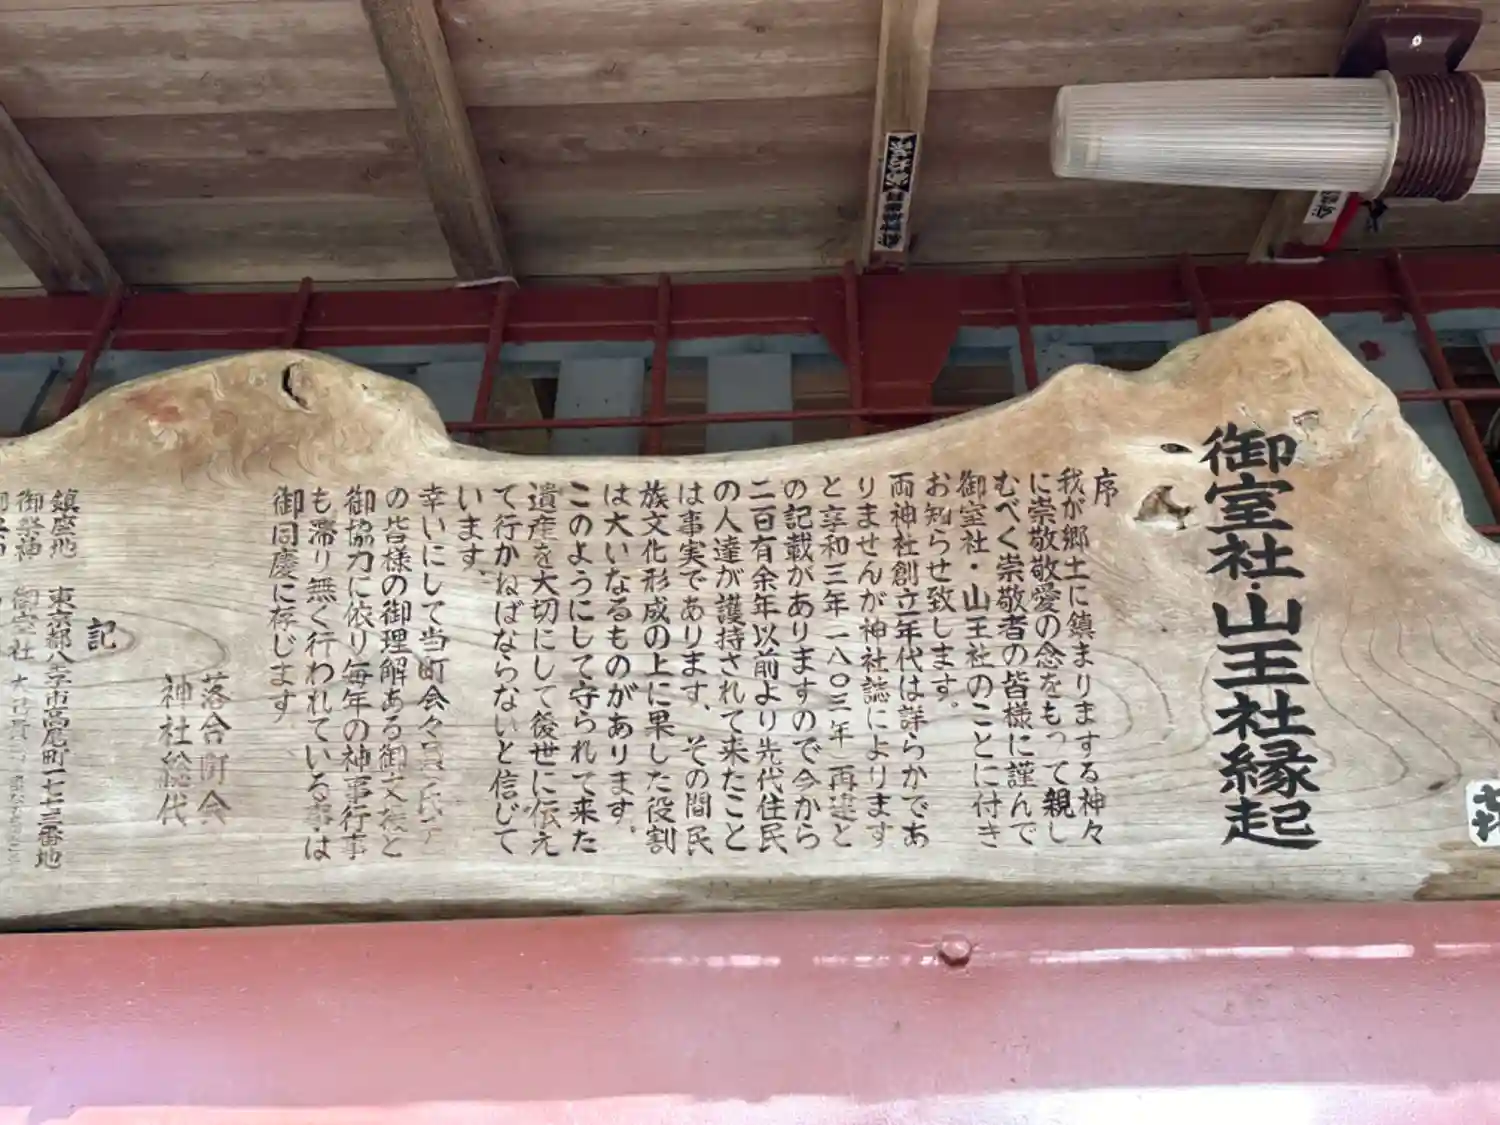 御室社・山王社縁起
序
我が郷土に鎮まりまする神々
に崇敬敬愛の念をもって親し
むべく崇敬者の皆様に謹んで
御室社・山王社のことに付き
お知らせ致します。
両神社創立年代は詳らかであ
りませんが神社誌によります
と享和三年一八〇三年再建と
の記載がありますので今から
二百有余年以前より先代住民
の人達が護持されて来たこと
は事実であります、その間民
族文化形成の上に果した役割
は大いなるものがあります。
このようにして守られて来た
遺産を大切にして後世に伝え
て行かねばならないと信じて
います、
幸いにして当町会々員氏子
の皆様の御理解ある御支援と
御協力に依り毎年の神事行事
も滞り無く行われている事は
御同慶に存じます
落合町会
神社総代
記
鎮座地 東京都八王子市高尾町一七七三番地
御祭神 御室社